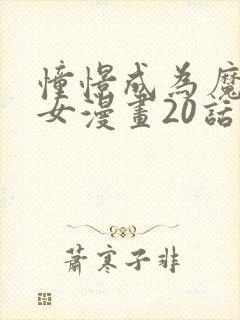 憧憬成為魔
女漫畫20話
蕭寒子非